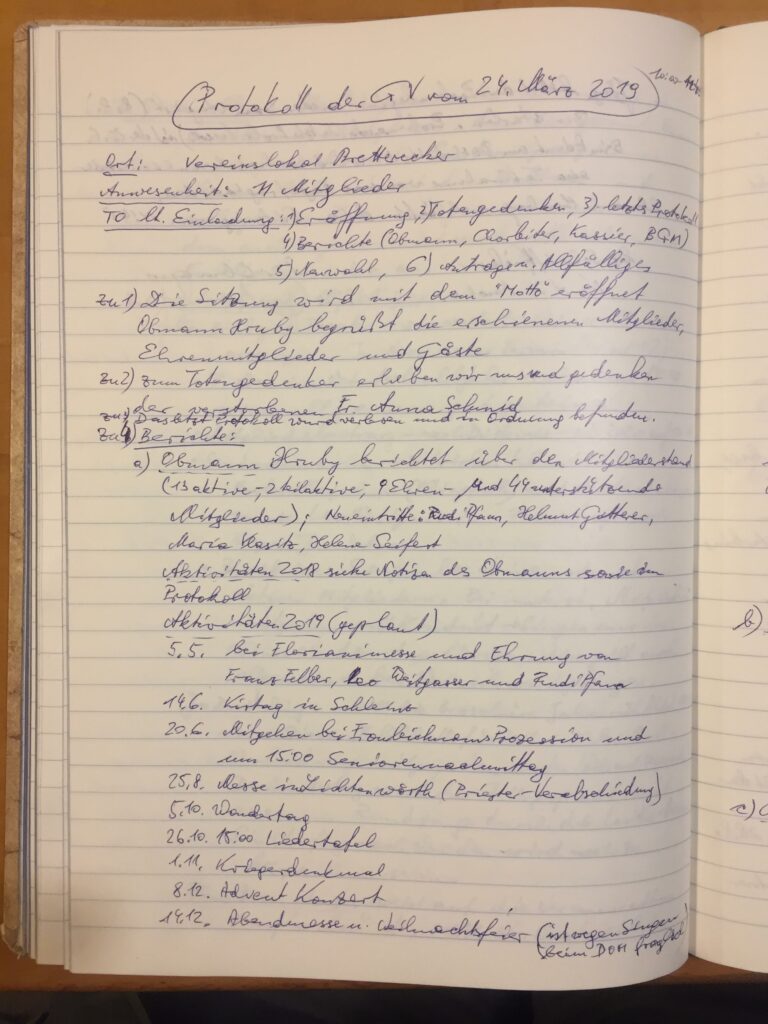 Protokoll der GV vom 24. März 2019
10:00
Ort: Vereinslokal Bretterecker
Anwesenheit: 11 Mitglieder
TO lt. Einladung: 1) Eröffnung, 2) Totengedenken, 3) letztes Protokoll
4) Berichte (Obmann, Chorleiter, Kassier, BGM)
5) Neuwahl, 6) Anträge u. Allfälliges
zu 1) Die Sitzung wird mit dem "Motto" eröffnet
Obmann Hruby begrüßt die erschienenen Mitglieder,
Ehrenmitglieder und Gäste
zu 2) zum Totengedenken erheben wir uns und gedenken
der verstorbenen Fr. Anna Schmid
zu 3) Das letzt Protokoll wurd verlesen und in Ordnung befunden.
zu 4) Berichte:
a) Obmann Hruby berichtet über den Mitgliederstand
(13 aktive-, 2 teilaktive-, 9 Ehren- und 44 unterstützende
Mitglieder); Neueintritte: Rudi Pfann, Helmut Gatterer,
Maria Vlasitz, Helene Seifert
Aktivitäten 2018 siehe Notizen des Obmanns sowie im
Protokoll
Aktivitäten 2019 (geplant)
5.5. bei Florianimesse und Ehrung von
Franz Felber, Leo Weitgasser und Rudi Pfann
14.6. Kirtag in Schleinz
20.6. Mitgehen bei Fronleichnams Prozession und
um 15:00 Seniorennachmittag
25.8. Messe in Lichtenwörth (Priester-Verabschiedung)
5.10. Wandertag
26.10. 15:00 Liedertafel
1.11. Kriegerdenkmal
8.12. Advent Konzert
14.12. Abendmesse u. Weihnachtsfeier (ist wegen Singen
beim DOM fraglich)
b)
c)